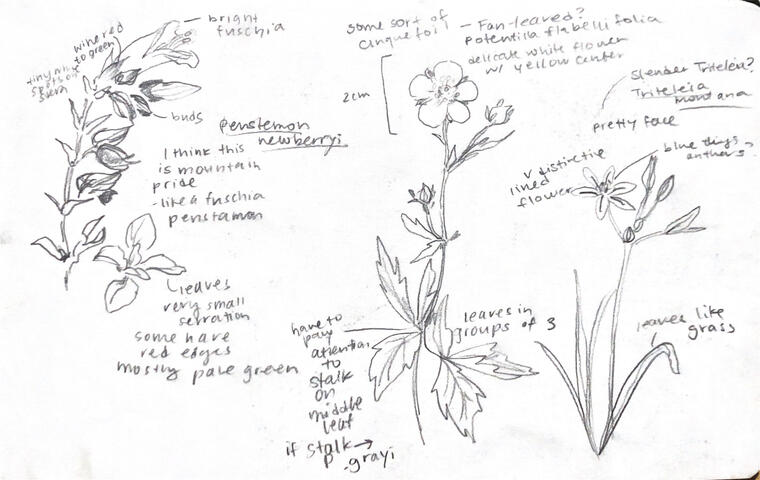 bright
fuschia
wine red
to green
tiny
spots on
buds
penstemon
newberryi
I think this
is mountain
pride
- like a fuschia
penstamon
leaves
very small
serration
some have
red edges
mostly pale green
some sort of
cinquefoil
- Fan-leaved?
potentilla flabellifolia
delicate white flower
w/ yellow center
2cm
leaves in
groups of 3
have to
pay
attention
to
stalk
on
middle
leaf
if stalk →
P. grayi
Slender Triteleia?
Triteleia
montana
pretty face
blue things
anthers?
v distinctive
lined
flower
leaves like
grass